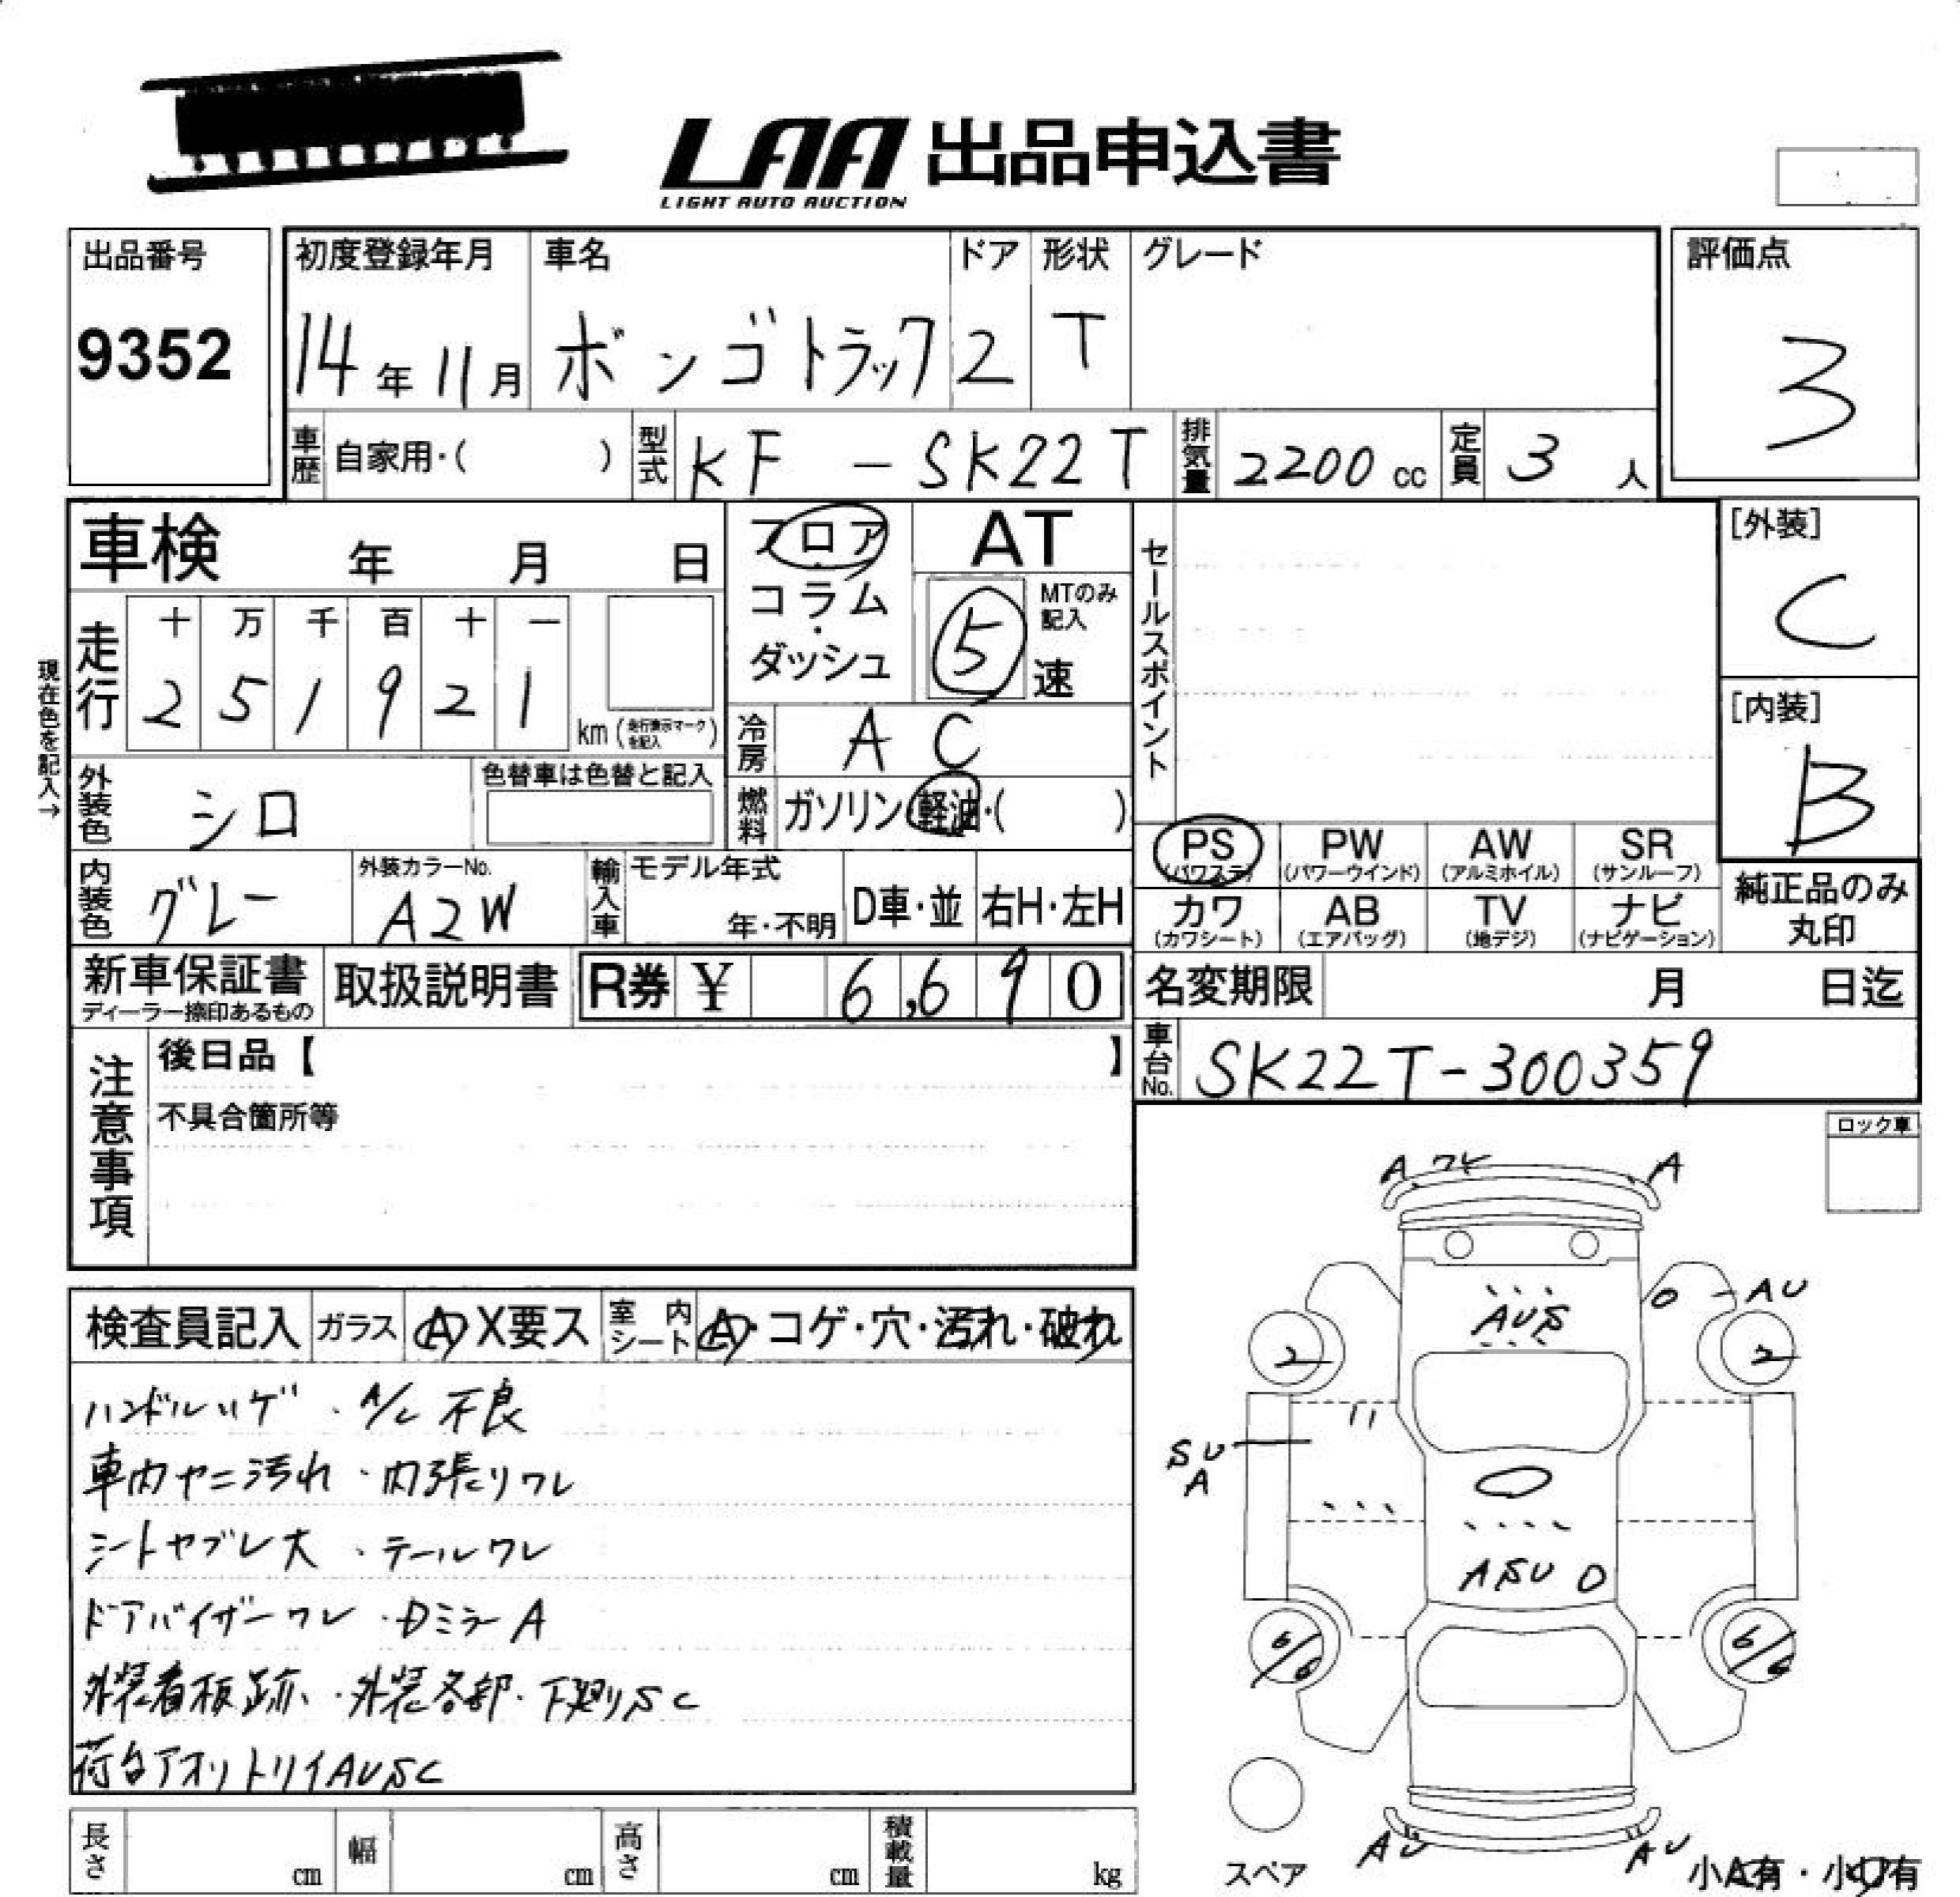 LAA 出品申込書
LIGHT AUTO AUCTION
出品番号
9352
初度登録年月 車名 ドア 形状 グレード
14年11月 ボンゴトラック 2 T
評価点
3
車歴 自家用・( ) 型式 KF-SK22T 排気量 2200cc 定員 3人
車検 年 月 日
フロア・コラム・ダッシュ
AT
⑤ MTのみ記入 速
セールスポイント
[外装]
C
[内装]
B
現在色を記入→
走行
十 万 千 百 十 一
2 5 1 9 2 1 km (走行表示マークを記入)
冷房 AC
外装色 シロ 色替車は色替と記入
燃料 ガソリン・軽油・( )
内装色 グレー 外装カラーNo. A2W
輸入車 モデル年式 年・不明 D車・並 右H・左H
PS PW AW SR
(パワステ) (パワーウインド) (アルミホイル) (サンルーフ)
カワ AB TV ナビ
(カワシート) (エアバッグ) (地デジ) (ナビゲーション)
純正品のみ
丸印
新車保証書 取扱説明書 R券 ¥ 6,690
ディーラー捺印あるもの
名変期限 月 日迄
車台No. SK22T-300359
注意事項
後日品【 】
不具合箇所等
ロック車
検査員記入 ガラス A・X要ス 室内シート A・コゲ・穴・汚れ・破れ
ハンドルハゲ・A/C不良
車内ヤニ汚れ・内張りワレ
シートヤブレ大・テールワレ
ドアバイザーワレ・DミラーA
外装看板跡・外装各部・下廻りSC
荷台アオリトリイAUSC
A ワレ A
AUS
AU
2 2
SU
A
ASU
6/6 6/6
AU AU
スペア
小A有・小U有
長さ cm 幅 cm 高さ cm 積載量 kg